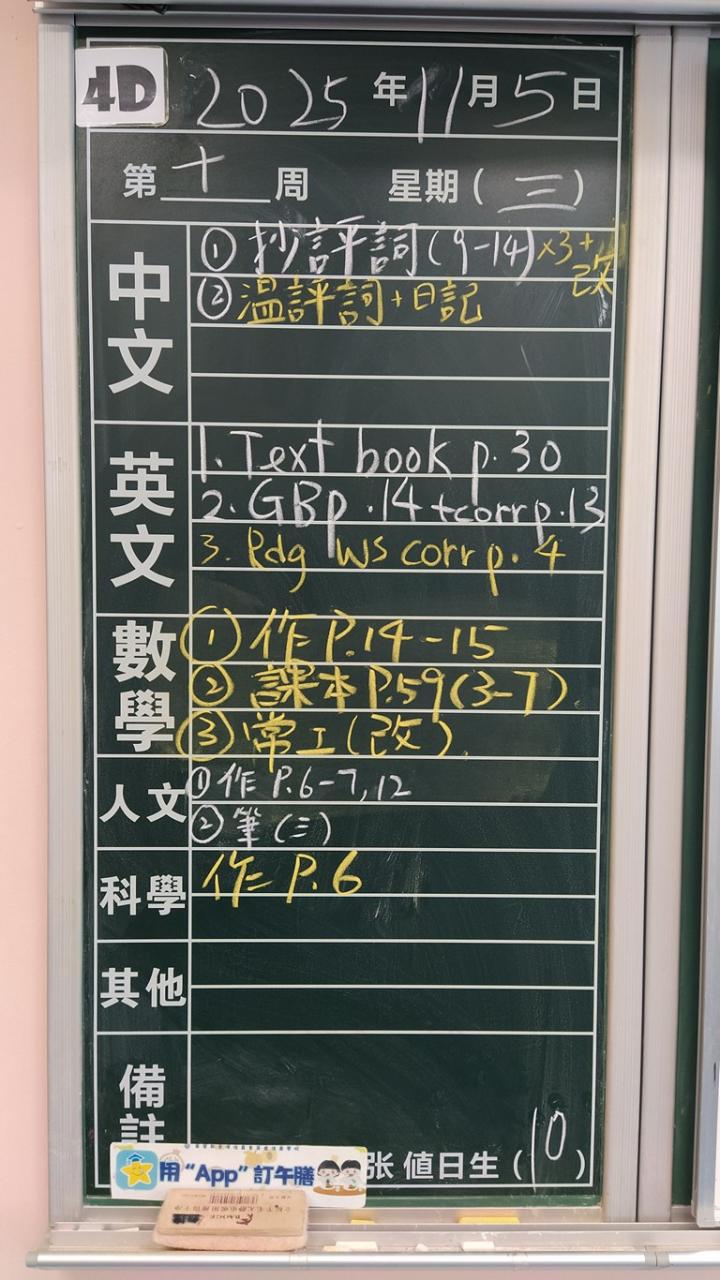 4D 2025年11月5日
第十周 星期(三)
中文
①抄評詞(9-14)×3+改
②温評詞+日記
英文
1. Text book p.30
2. GB p.14 + corr p.13
3. Rdg WS corr p.4
數學
①作P.14-15
②課本P.59(3-7).
③常工(改).
人文
①作P.6-7,12
②筆(三)
科學
作P.6
其他
備註
用“App”訂午膳
张 值日生(10)